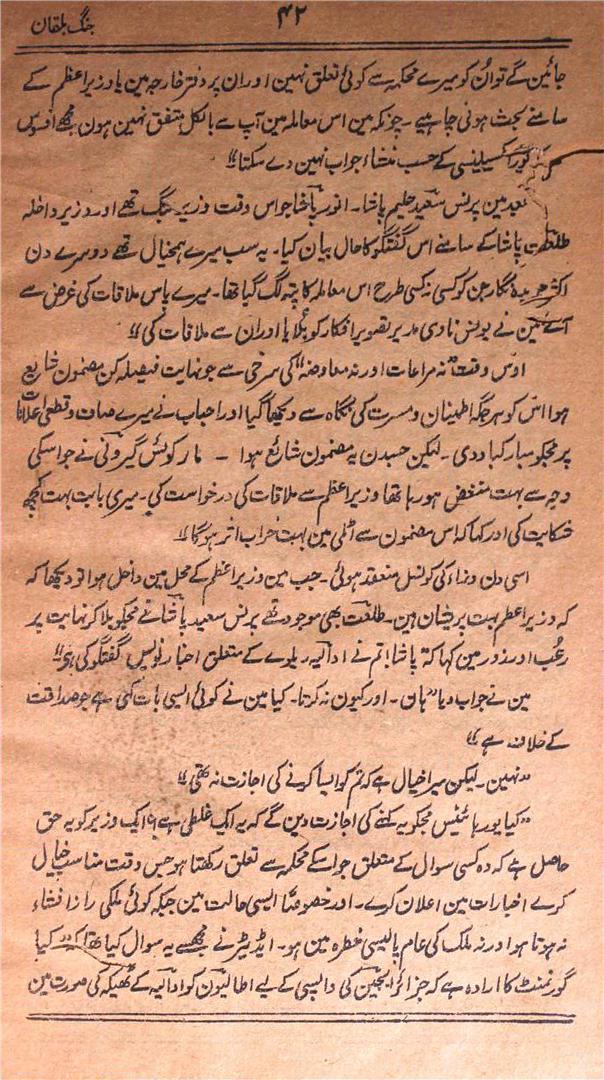 ۴۲
جنگ بلقان
جائین گے تو اُن کو میرے محکمہ سے کوئی تعلق نہین اور ان پر دفتر خارجہ مین یا وزیر اعظم کے
سامنے بحث ہونی چاہیے ۔ چونکہ مین اس معاملہ مین آپ سے بالکل متفق نہین ہون مجھے افسوس
یور اکسیلینسی کے حسب منشاء جواب نہین دے سکتا"
بعد مین پرنس سعید حلیم پاشا۔ انور پاشا جو اس وقت وزیر جنگ تھے اور وزیر داخلہ
طلعت پاشا کے سامنے اس گفتگو کا حال بیان کیا۔ یہ سب میرے ہمخیال تھے دوسرے دن
اکثر جریدہ نگار جن کو کسی نہ کسی طرح اس معاملہ کا پتہ لگ گیا تھا۔ میرے پاس ملاقات کی غرض سے
آئے مین نے یونس نادی مدیر تصویر افکار کو بلایا اور ان سے ملاقات کی"
اوس وقت "نہ مراعات اور نہ معاوضہ" کی سرخی سے جو نہایت فیصلہ کن مضمون شایع
ہوا اس کو ہر جگہ اطمینان و مسرت کی نگاہ سے دیکھا گیا اور احباب نے میرے صاف و قطعی اعلانات
پر مجکو مبارکباد دی ۔ لیکن جسدن یہ مضمون شائع ہوا ۔ مارکوئس گیرونی نے جو اسکی
وجہ سے بہت منغض ہو رہا تھا وزیر اعظم سے ملاقات کی درخواست کی۔ میری بابت بہت کچھ
شکایت کی اور کہا کہ اس مضمون سے اٹلی مین بہت خراب اثر ہوگا"
اسی دن وزراء کی کونسل منعقد ہوئی ۔ جب مین وزیر اعظم کے محل مین داخل ہوا تو دیکھا کہ
کہ وزیر اعظم بہت پریشان ہین۔ طلعت بھی موجود تھے پرنس سعید پاشا نے مجکو بلا کر نہایت پر
رعب اور زور مین کہا کہ پاشا! تم نے ادالیہ ریلوے کے متعلق اخبار نویس گفتگو کی ہی"
مین نے جواب دیا "ہان۔ اور کیون نہ کرتا۔ کیا مین نے کوئی ایسی بات کہی ہے جو صداقت
کے خلاف ہے"
"نہین۔ لیکن میرا خیال ہے کہ تم کو ایسا کرنے کی اجازت نہ تھی"
"کیا یور ہائنس مجکو یہ کہنے کی اجازت دین گے کہ یہ ایک غلطی ہے؟ ایک وزیر کو یہ حق
حاصل ہے کہ وہ کسی سوال کے متعلق جو اسکے محکمہ سے تعلق رکھتا ہو جس وقت مناسب خیال
کرے اخبارات مین اعلان کرے۔ اور خصوصاً ایسی حالت مین جبکہ کوئی ملکی راز افشاء
نہ ہوتا ہو اور نہ ملک کی عام پالیسی خطرہ مین ہو۔ ایڈیٹر نے مجھسے یہ سوال کیا تھا کہ کیا
گورنمنٹ کا ارادہ ہے کہ جزائر ایجین کی واپسی کے لیے اطالیون کو ادالیہ کے ٹھیکہ کی صورت مین